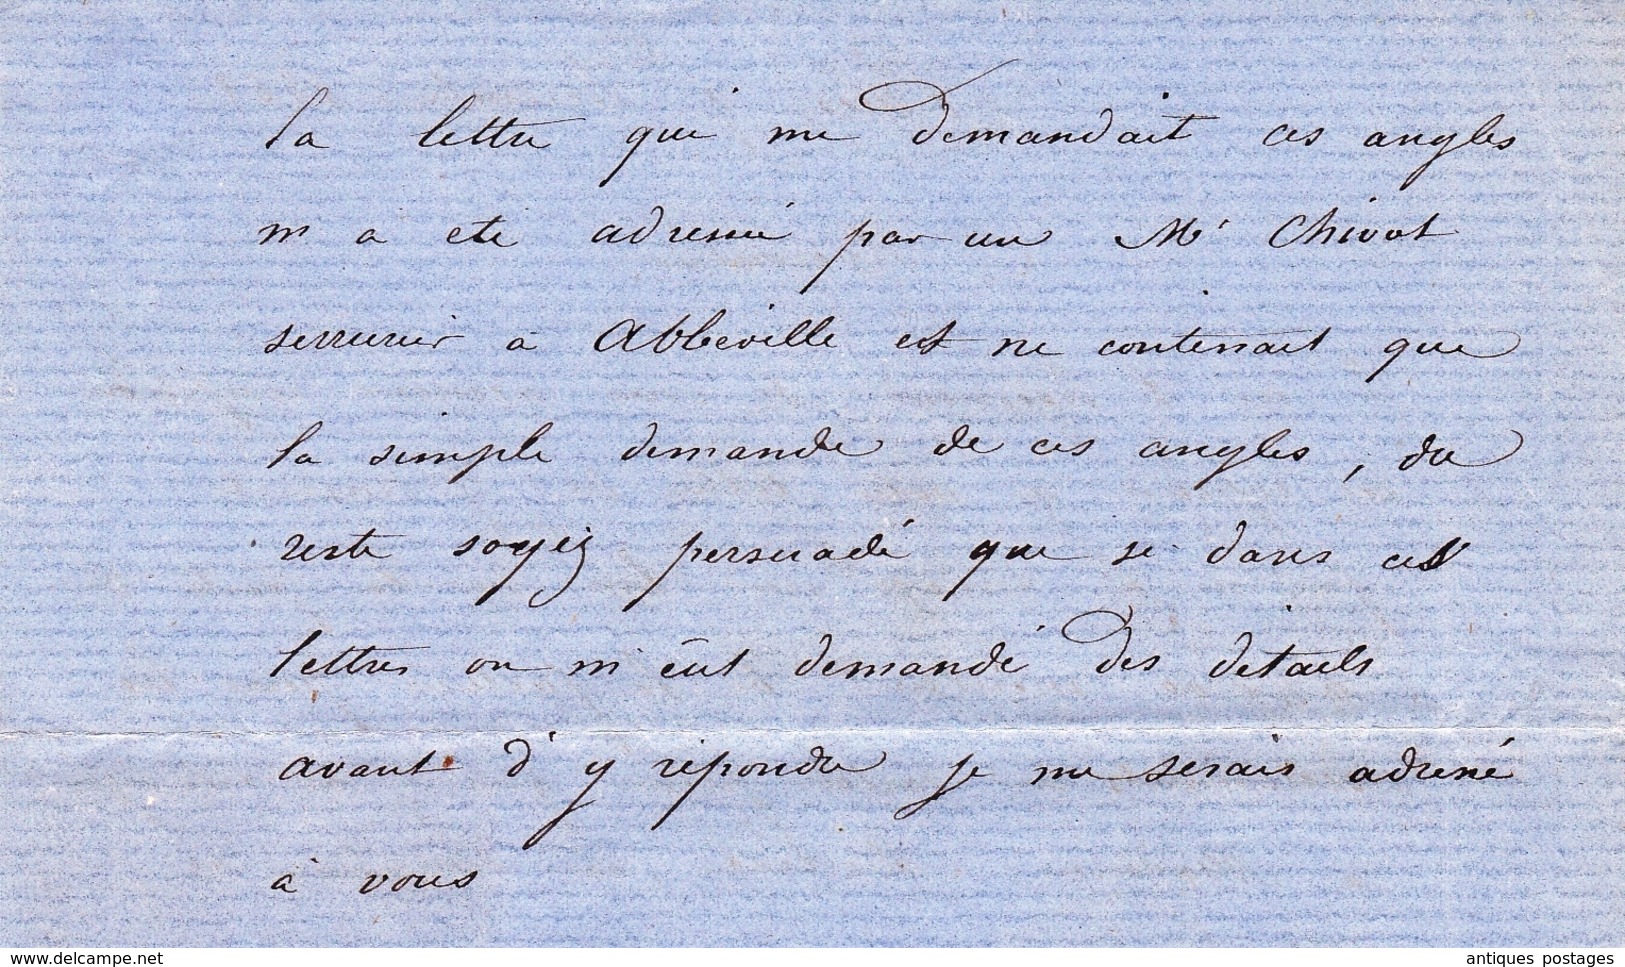 la lettre qui me demandait ces angles
m'a eté adressée par un Mr Chivot
serrurier à Abbeville est ne contenait que
la simple demande de ces angles, du
reste soyez persuadé que si dans ces
lettres on m'eût demandé des details
avant d'y repondre je me serais adressé
à vous
www.delcampe.net
antiques postages